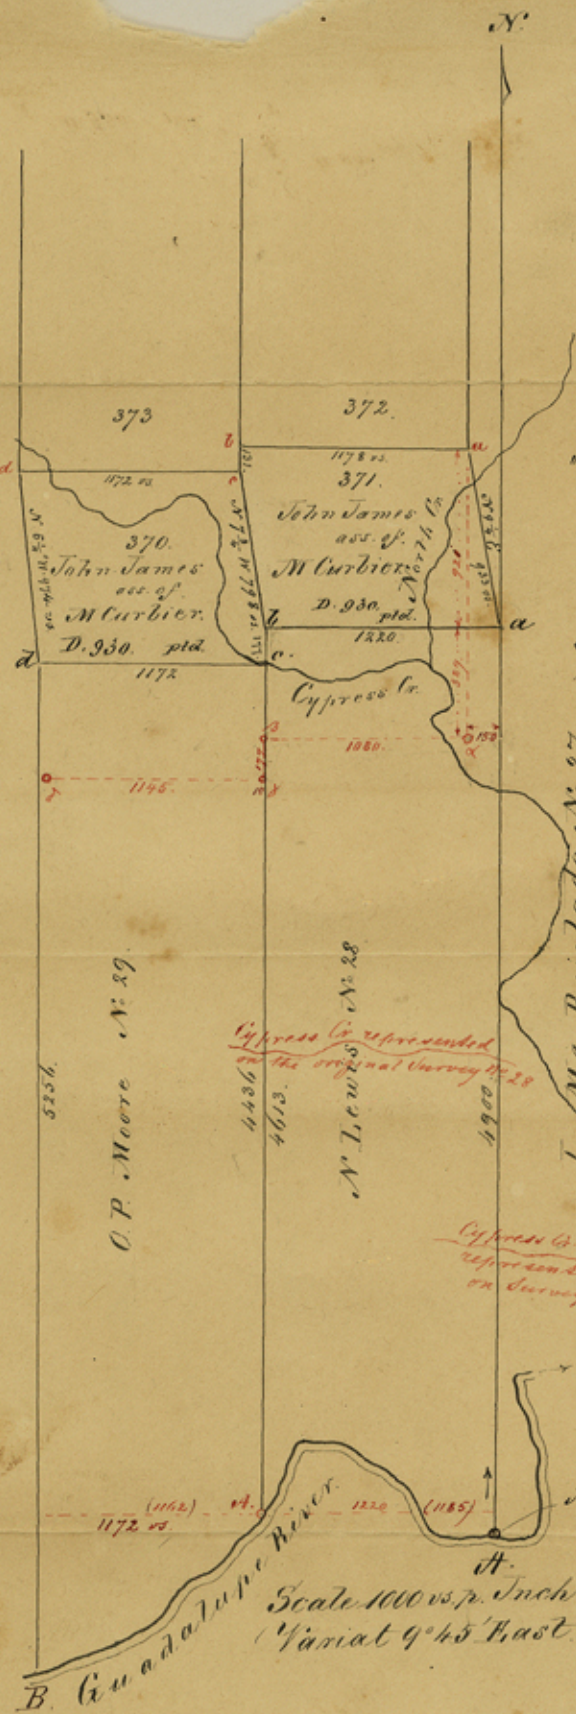 N.
373
372.
b
a
d
1172 vs
c
1178 vs.
371.
John James
ass. of
M Curbier.
D. 930. ptd.
North Cr.
920
370.
John James
ass. of
M Curbier.
D. 930. ptd.
b
1220.
a
d
1172
c.
Cypress Cr.
507
1080.
150
1145.
77
O. P. Moore No. 29.
N Lewis No 28
Cypress Cr. represented
on the original Survey No 28
5256.
4436
4613.
4900.
Cypress Cr
represen
on Survey
(1162)
1172 vs.
A.
1220
(1185)
A.
Guadalupe River.
B.
Scale 1000 vs. p. Inch
Variat 9° 45' East.